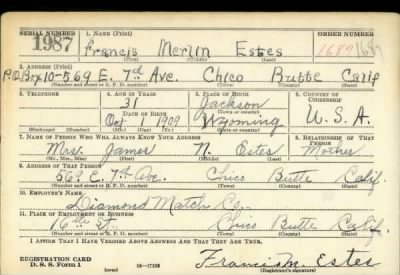 SERIAL NUMBER 1. NAME (Print) ORDER NUMBER
1987 Francis Merlin Estes 1687
(First) (Middle) (Last)
2. ADDRESS (Print)
P.O. Box 10-569 E. 7th Ave. Chico Butte Calif
(Number and street or R. F. D. number) (Town) (County) (State)
3. TELEPHONE 4. AGE IN YEARS 5. PLACE OF BIRTH 6. COUNTRY OF CITIZENSHIP
31 Jackson
DATE OF BIRTH (Town or county)
Oct 1 1909 Wyoming U. S. A.
(Exchange) (Number) (Mo.) (Day) (Yr.) (State or country)
7. NAME OF PERSON WHO WILL ALWAYS KNOW YOUR ADDRESS 8. RELATIONSHIP OF THAT PERSON
Mrs. James N. Estes Mother
(Mr., Mrs., Miss) (First) (Middle) (Last)
9. ADDRESS OF THAT PERSON
569 E. 7th Ave. Chico Butte Calif.
(Number and street or R. F. D. number) (Town) (County) (State)
10. EMPLOYER'S NAME
Diamond Match Co.
11. PLACE OF EMPLOYMENT OR BUSINESS
16th St. Chico Butte Calif
(Number and street or R. F. D. number) (Town) (County) (State)
I AFFIRM THAT I HAVE VERIFIED ABOVE ANSWERS AND THAT THEY ARE TRUE.
REGISTRATION CARD
D. S. S. Form 1 (over) 16-17105 Francis M. Estes
(Registrant's signature)